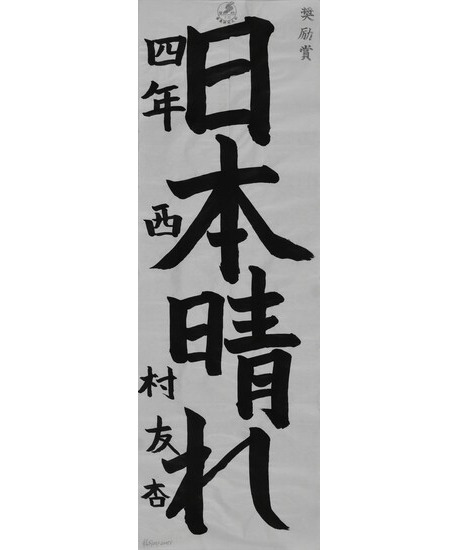 奨励賞
日本晴れ
四年 西村友杏